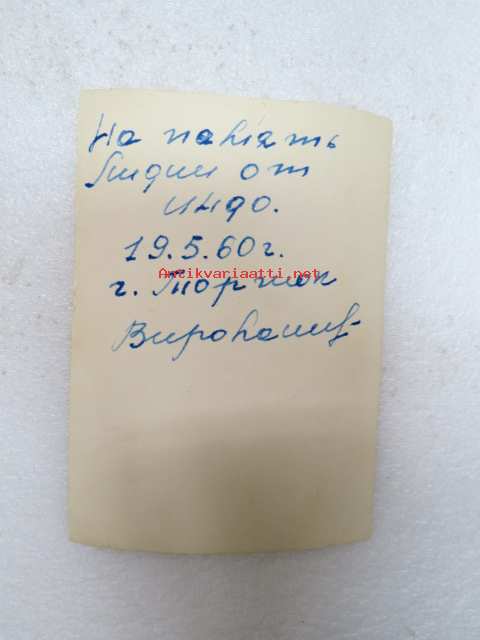 На память
Лидии от
Индо.
19.5.60г.
Antikvariaatti.net
г. Торжок